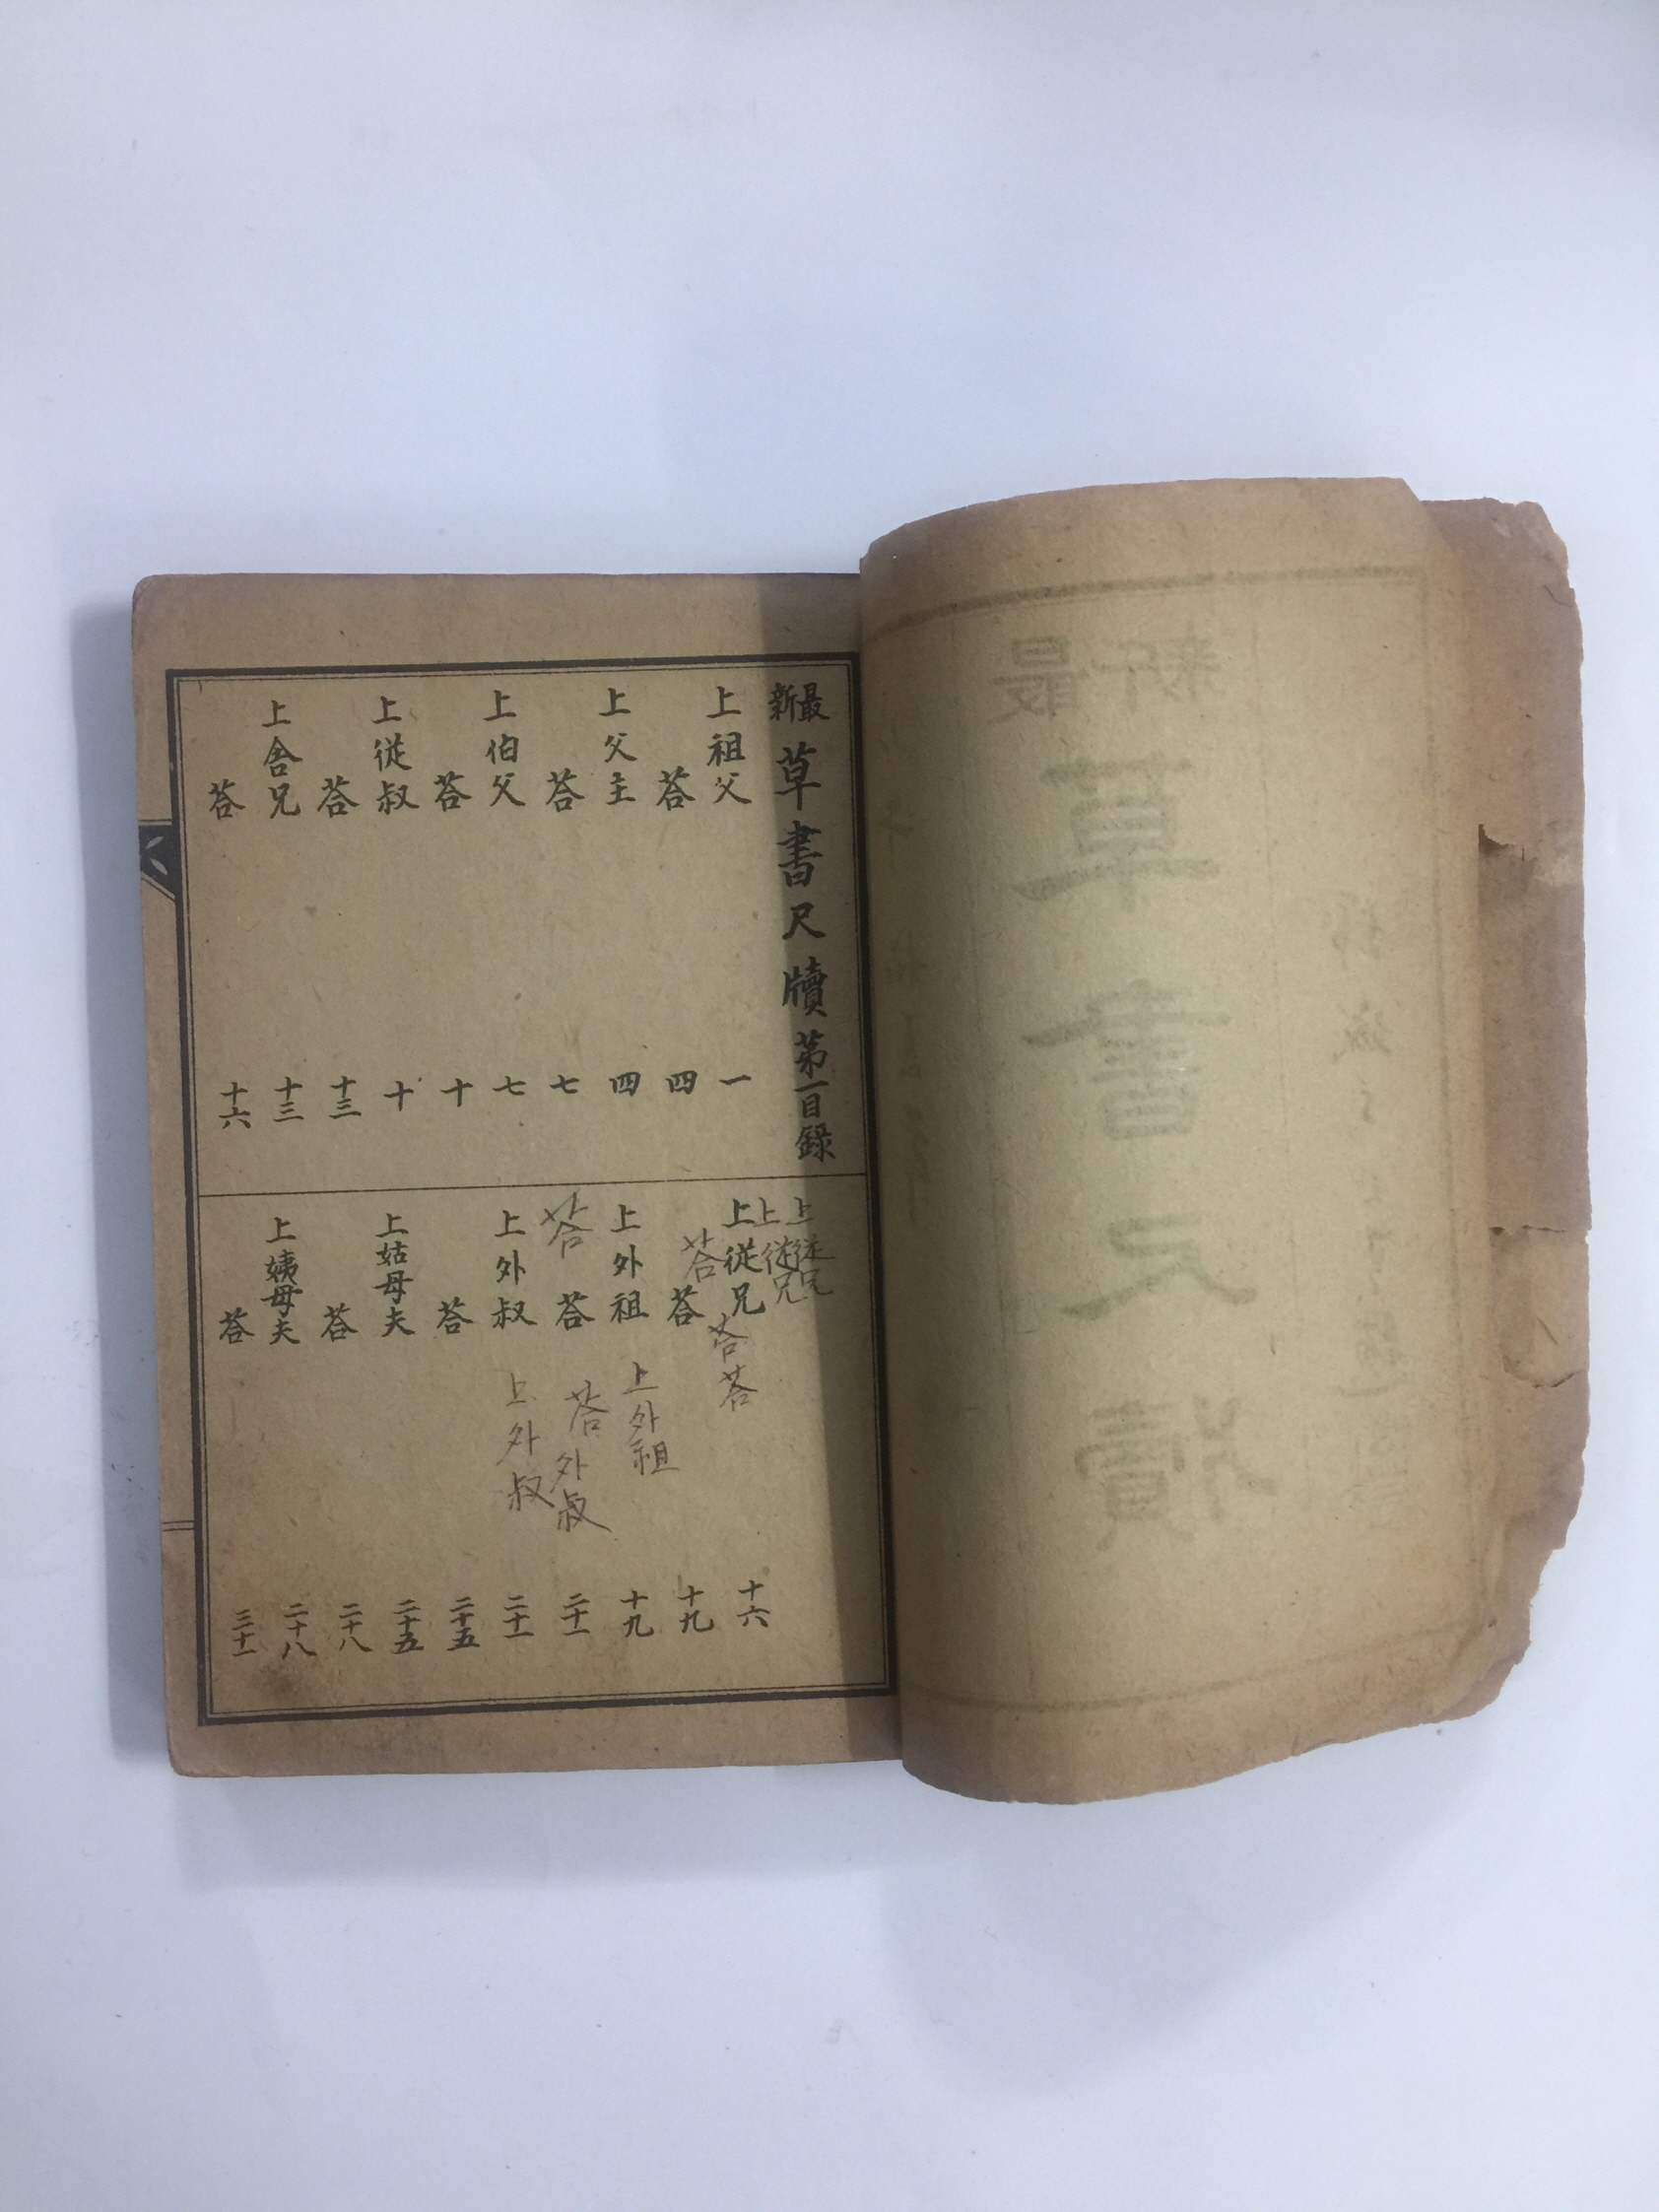 最新草書尺牘第一目錄
上祖父 一
荅 四
上父主 四
荅 七
上伯父 七
荅 十
上從叔 十
荅 十三
上舍兄 十三
荅 十六
上從兄 十六
荅 十九
上外祖 十九
荅 二十一
上外叔 二十一
荅 二十五
上姑母夫 二十五
荅 二十八
上姨母夫 二十八
荅 三十一
上從兄
上從兄
荅
荅
荅
荅
上外祖
荅
外叔
上外叔
最新
草書尺牘